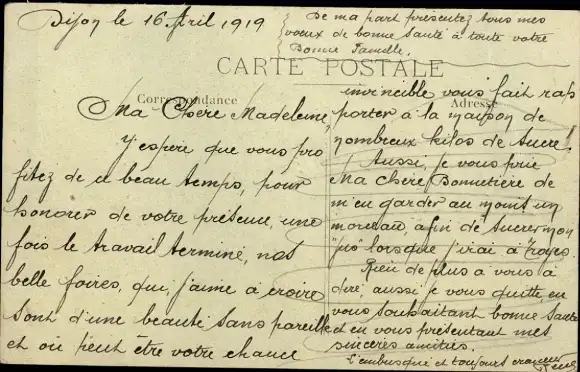 Dijon le 16 Avril 1919
De ma part présentez tous mes
voeux de bonne santé à toute votre
Bonne Famille.
CARTE POSTALE
Correspondance
Adresse
Ma Chère Madeleine,
J'espère que vous pro
fitez de ce beau temps, pour
honorer de votre présence, une
fois le travail terminé, nos
belle foires, qui, j'aime à croire
sont d'une beauté sans pareille
et où peut être votre chance
invincible vous fait rap
porter à la maison de
nombreux kilos de sucre!
Aussi, je vous prie
Ma chère Bonnetière de
m'en garder au moins un
morceau, afin de sucrer mon
"jus" lorsque j'irai à Troyes.
Rien de plus à vous à
dire, aussi je vous quitte, en
vous souhaitant bonne santé
et en vous présentant mes
sincères amitiés.
L'embusqué et toujours